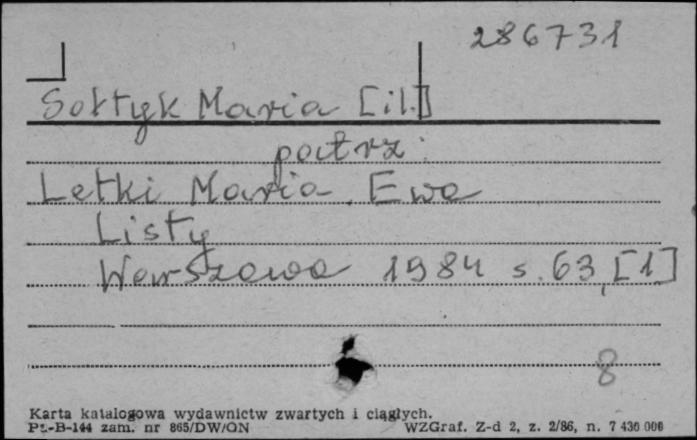 286731
Sołtyk Maria [il.]
patrz:
Letki Maria Ewa
Listy
Warszawa 1984 s. 63, [1]
8
Karta katalogowa wydawnictw zwartych i ciągłych.
Pt.-B-144 zam. nr 865/DW/ON WZGraf. Z-d 2, z. 2/86, n. 7 430 000